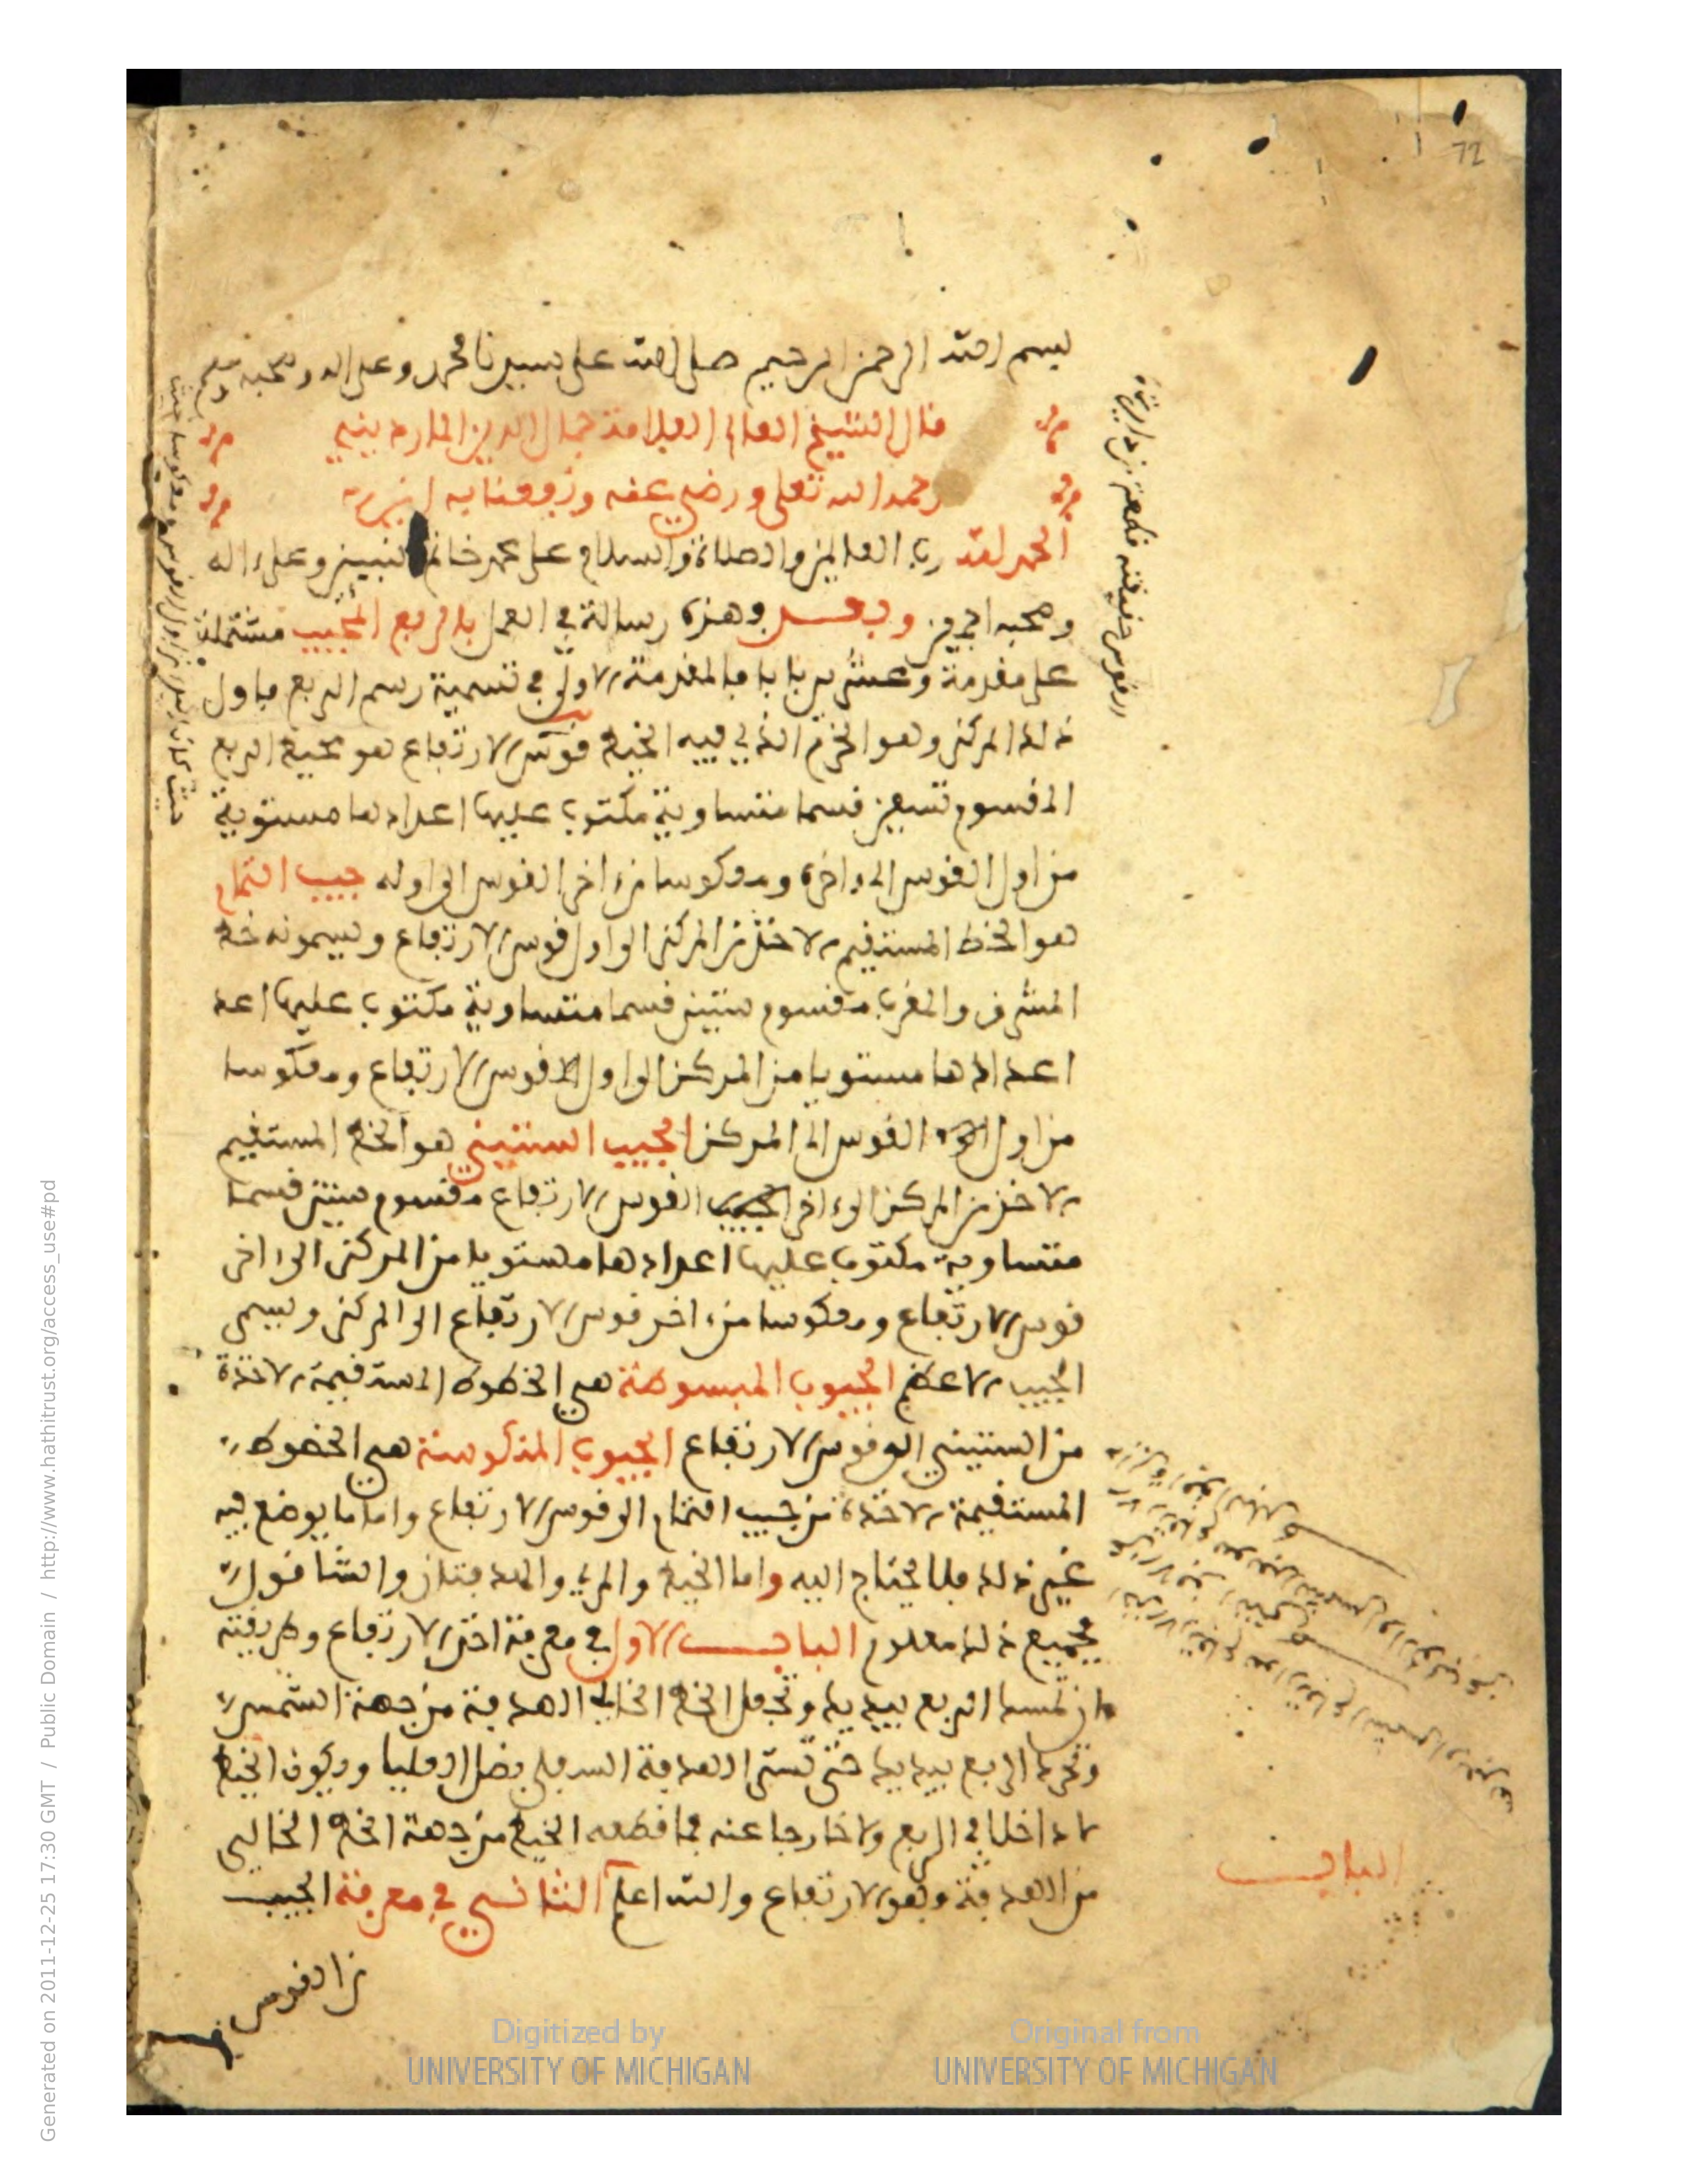 72
بسم الله الرحمن الرحيم صلى الله على سيدنا محمد وعلى اله وصحبه وسلم
قال الشيخ العالم العلامة جمال الدين الماردينيي
رحمه الله تعلى ورضي عنه ونفعنا به امين
الحمد لله رب العالمين والصلاة والسلام على محمد خاتم النبيين وعلى اله
وصحبه اجمعين وبعد فهذه رسالة في العمل بالربع المجيب مشتملة
على مقدمة وعشرين بابا فالمقدمة الاولى في تسمية رسم الربع فاول
ذلك المركز وهو الخرم الذي فيه الخيط قوس الارتفاع هو محيط الربع
المقسوم تسعين قسما متساوية مكتوب عليها اعدادها مستوية
من اول القوس الى اخره ومعكوسا من اخر القوس الى اوله جيب التمام
هو الخط المستقيم الاخذ من المركز الى اول قوس الارتفاع ويسمونه خط
المشرق والمغرب مقسوم ستين قسما متساوية مكتوب عليها اعد
اعدادها مستويا من المركز الى اول القوس الارتفاع ومعكوسا
من اول القوس الى المركز الجيب الستيني هو الخط المستقيم
الاخذ من المركز الى اخر القوس الارتفاع مقسوم ستين قسما
متساوية مكتوب عليها اعدادها مستويا من المركز الى اخر
قوس الارتفاع ومعكوسا من اخر قوس الارتفاع الى المركز ويسمى
الجيب الاعظم الجيوب المبسوطة هي الخطوط المستقيمة الاخذة
من الستيني الى قوس الارتفاع الجيوب المنكوسة هي الخطوط
المستقيمة الاخذة من جيب التمام الى قوس الارتفاع واما ما يوضع فيه
غير ذلك فلا يحتاج اليه واما الخيط والمري والهدفتان والشاقول
فجميع ذلك معلوم الباب الاول في معرفة اخذ الارتفاع وطريقته
ان تمسك الربع بيديك وتجعل الخط الخالي الهدفة من جهة الشمس
وتحرك الربع بيديك حتى تستر الهدفة السفلى بظل العليا ويكون الخيط
لا داخلا في الربع ولا خارجا عنه فما قطعه الخيط من جهة الخط الخالي
من الهدفة وهو الارتفاع والله اعلم الثاني في معرفة الجيب
الباب
من القوس
Digitized by
UNIVERSITY OF MICHIGAN
Original from
UNIVERSITY OF MICHIGAN
Generated on 2011-12-25 17:30 GMT / Public Domain / http://www.hathitrust.org/access_use#pd